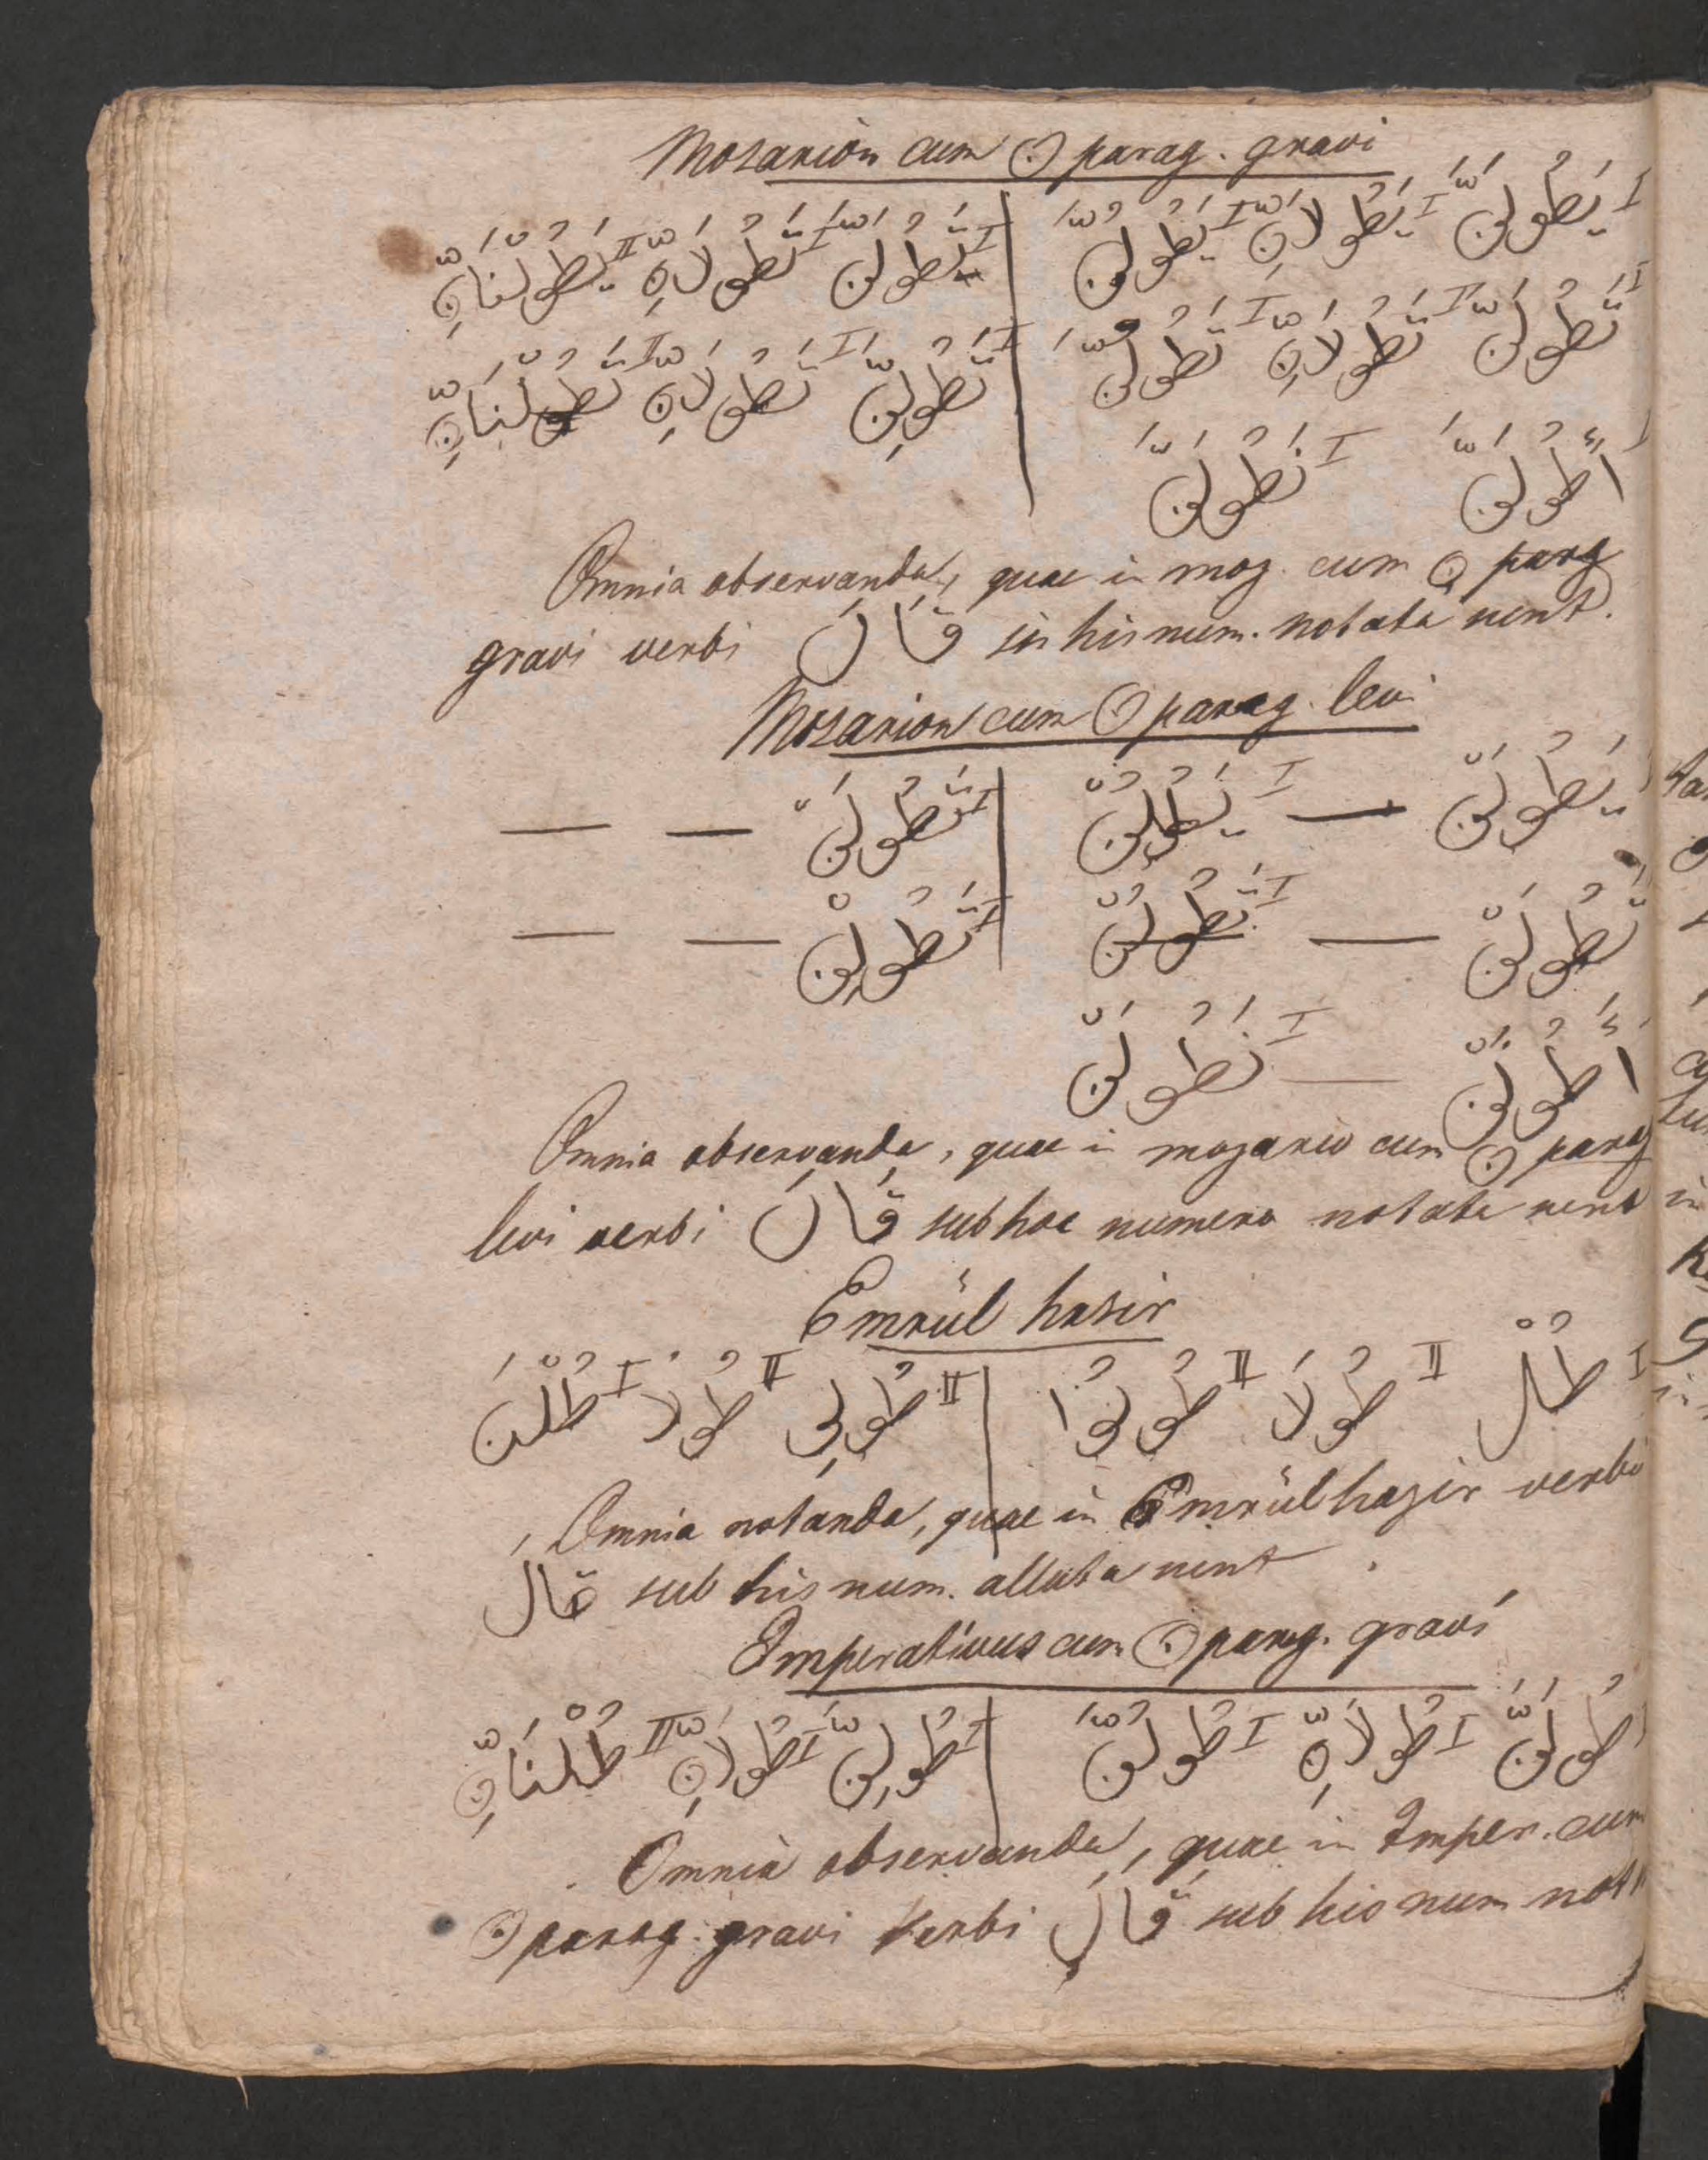 Mozarion cum ن parag. gravi
I يَطُولَنَّ I يَطُولَانِّ I يَطُولُنَّ | I تَطُولَنَّ I تَطُولَانِّ II يَطُولْنَانِّ
I تَطُولَنَّ I تَطُولَانِّ I تَطُولُنَّ | I تَطُولِنَّ I تَطُولَانِّ II تَطُولْنَانِّ
I أَطُولَنَّ I نَطُولَنَّ
Omnia observanda, quae in moz. cum ن parg
gravi verbi قَالَ in his num. notata sunt.
Mozarion cum ن parag. levi
يَطُولَنْ — I يَطُولُنْ | I تَطُولَنْ — —
تَطُولَنْ — I تَطُولُنْ | I تَطُولِنْ — —
أَطُولَنْ — I نَطُولَنْ
Omnia observanda, quae in mozario cum ن parag
levi verbi قَالَ sub hoc numero notata sunt
Emrül hasir
I طُلْ II طُولَا II طُولُوا | II طُولِى II طُولَا I طُلْنَ
Omnia notanda, quae in Emrül hazir verbi
قَال sub his num. allata sunt
Imperativus cum ن parag. gravi
I طُولَنَّ I طُولَانِّ I طُولُنَّ | I طُولِنَّ I طُولَانِّ II طُلْنَانِّ
Omnia observanda, quae in Imper. cum
ن parag. gravi verbi قَالَ sub his num not